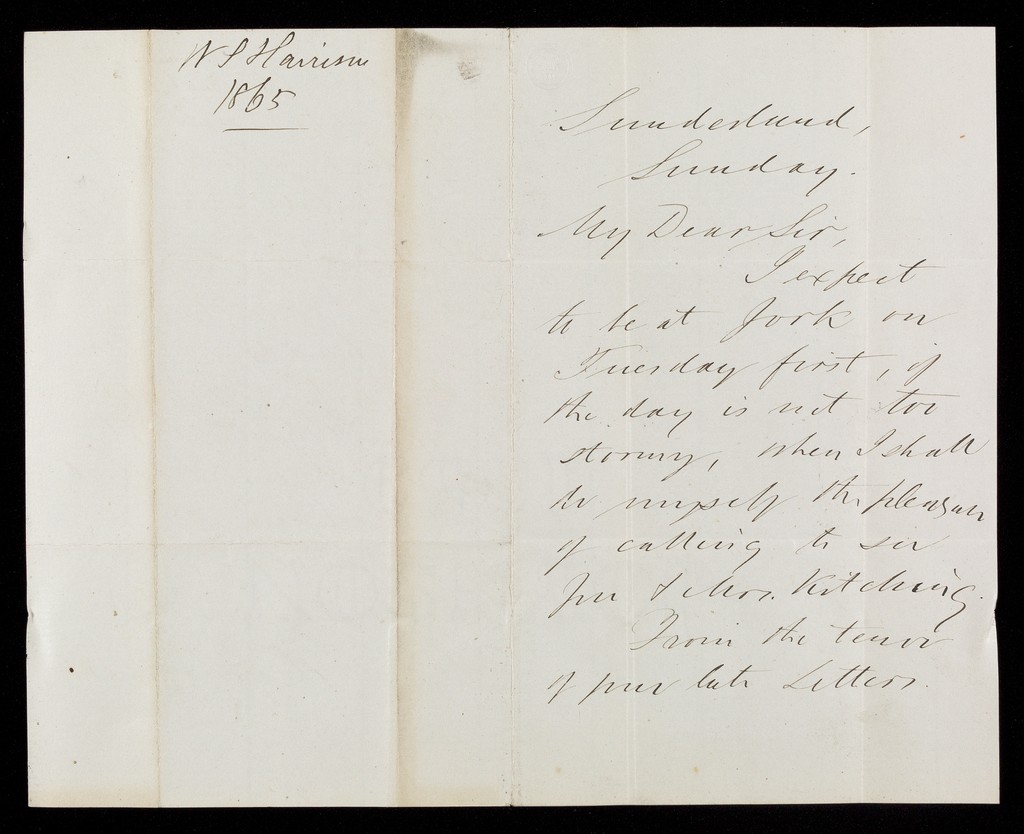 W S Harrison
1865
Sunderland,
Sunday.
My Dear Sir,
I expect
to be at York on
Tuesday first, if
the day is not too
stormy, when I shall
do myself the pleasure
of calling to see
you & Mrs. Kitching.
From the tenor
of your late Letters.